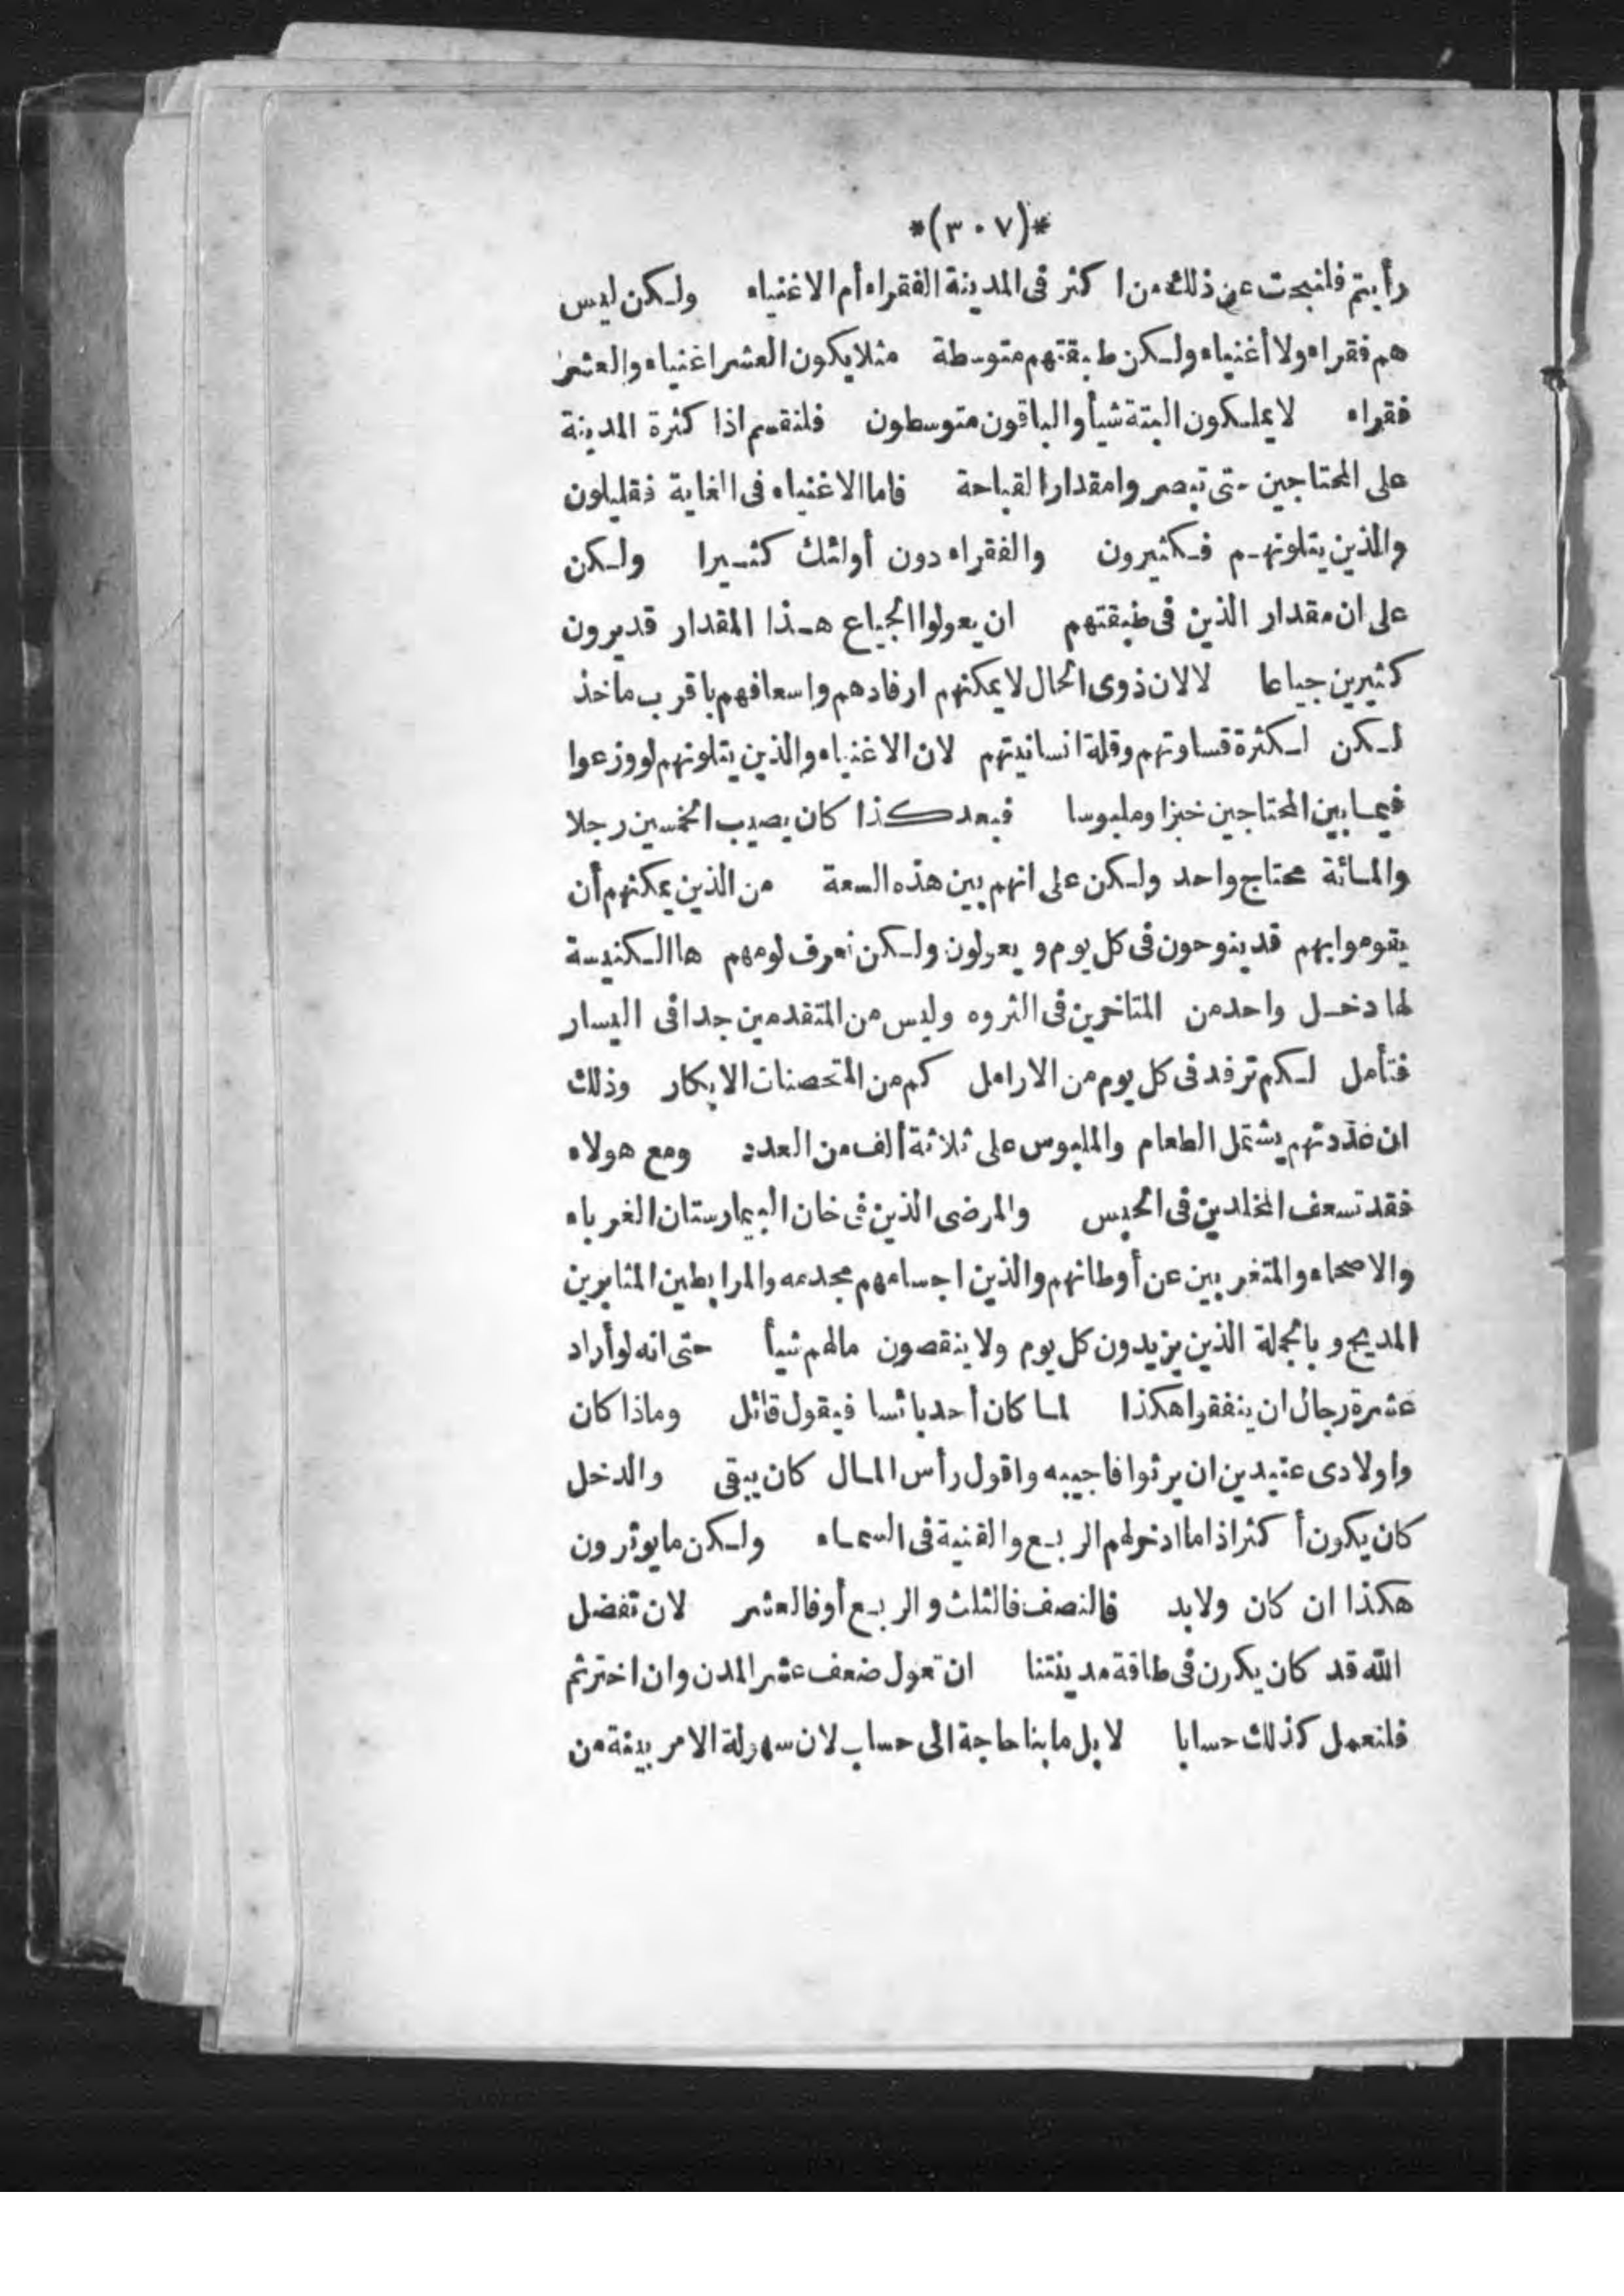 *(٣٠٧)*
رأيتم فلنبحث عن ذلك من اكثر فى المدينة الفقراء أم الاغنياء ولكن ليس
هم فقراء ولا أغنياء ولكن طبقتهم متوسطة مثلا يكون العشر اغنياء والعشر
فقراء لا يملكون البتة شيأ والباقون متوسطون فلنقسم اذا كثرة المدينة
على المحتاجين حتى تبصروا مقدار القباحة فاما الاغنياء فى الغاية فقليلون
والذين يتلونهم فكثيرون والفقراء دون أولئك كثيرا ولكن
على ان مقدار الذين فى طبقتهم ان يعولوا الجياع هذا المقدار قديرون
كثيرين جياعا لا لان ذوى الحال لا يمكنهم ارفادهم واسعافهم باقرب ماخذ
لكن لكثرة قساوتهم وقلة انسانيتهم لان الاغنياء والذين يتلونهم لو وزعوا
فيما بين المحتاجين خبزا وملبوسا فبعد كذا كان يصيب الخمسين رجلا
والمائة محتاج واحد ولكن على انهم بين هذه السعة من الذين يمكنهم أن
يقوموا بهم قد ينوحون فى كل يوم و يعولون ولكن نعرف لومهم ها الكنيسة
لها دخل واحد من المتاخرين فى الثروه وليس من المتقدمين جدا فى اليسار
فتأمل لكم ترفد فى كل يوم من الارامل كم من المتحصنات الابكار وذلك
ان عددتهم يشتمل الطعام والملبوس على ثلاثة ألف من العدد ومع هولاء
فقد تسعف المخلدين فى الحبس والمرضى الذين فى خان البيمارستان الغرباء
والاصحاء والمتغربين عن أوطانهم والذين اجسامهم مجدمه والمرابطين المثابرين
المديح و بالجملة الذين يزيدون كل يوم ولا ينقصون مالهم شيأ حتى انه لو أراد
عشرة رجال ان ينفقوا هكذا لما كان أحد بائسا فيقول قائل وماذا كان
واولادى عتيدين ان يرثوا فاجيبه واقول رأس المال كان يبقى والدخل
كان يكون أكثر اذا ما ادخر لهم الربع والقنية فى السماء ولكن ما يوثرون
هكذا ان كان ولابد فالنصف فالثلث والربع أو فالعشر لان تفضل
الله قد كان يكون فى طاقة مدينتنا ان تعول ضعف عشر المدن وان اخترتم
فلنعمل كذلك حسابا لا بل ما بنا حاجة الى حساب لان سهولة الامر بينة من